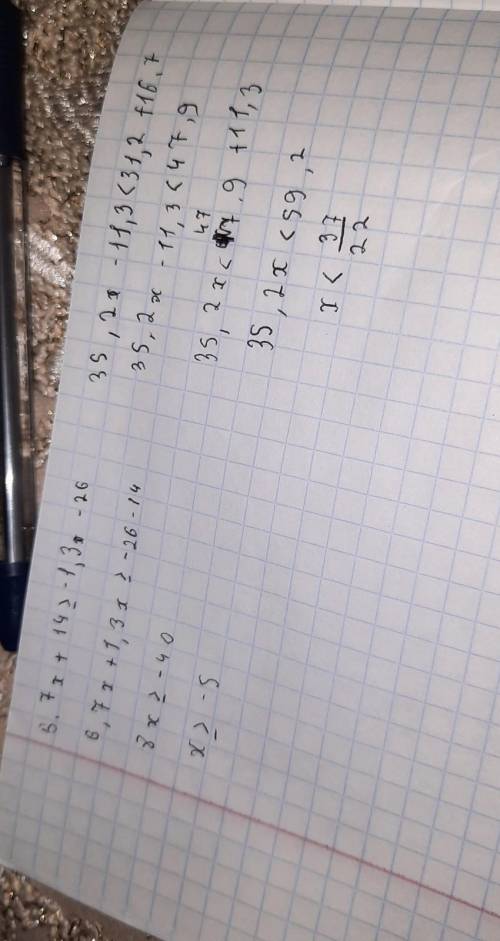 6,7x + 14 ≥ -1,3x - 26
6,7x + 1,3x ≥ -26 - 14
8x ≥ -40
x ≥ -5
35,2x - 11,3 < 31,2 + 16,7
35,2x - 11,3 < 47,9
35,2x < 47,9 + 11,3
35,2x < 59,2
x < 37/22